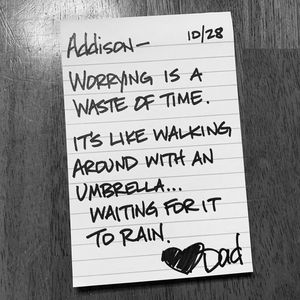 Addison— 10/28
WORRYING IS A
WASTE OF TIME.
IT'S LIKE WALKING
AROUND WITH AN
UMBRELLA...
WAITING FOR IT
TO RAIN.
Dad